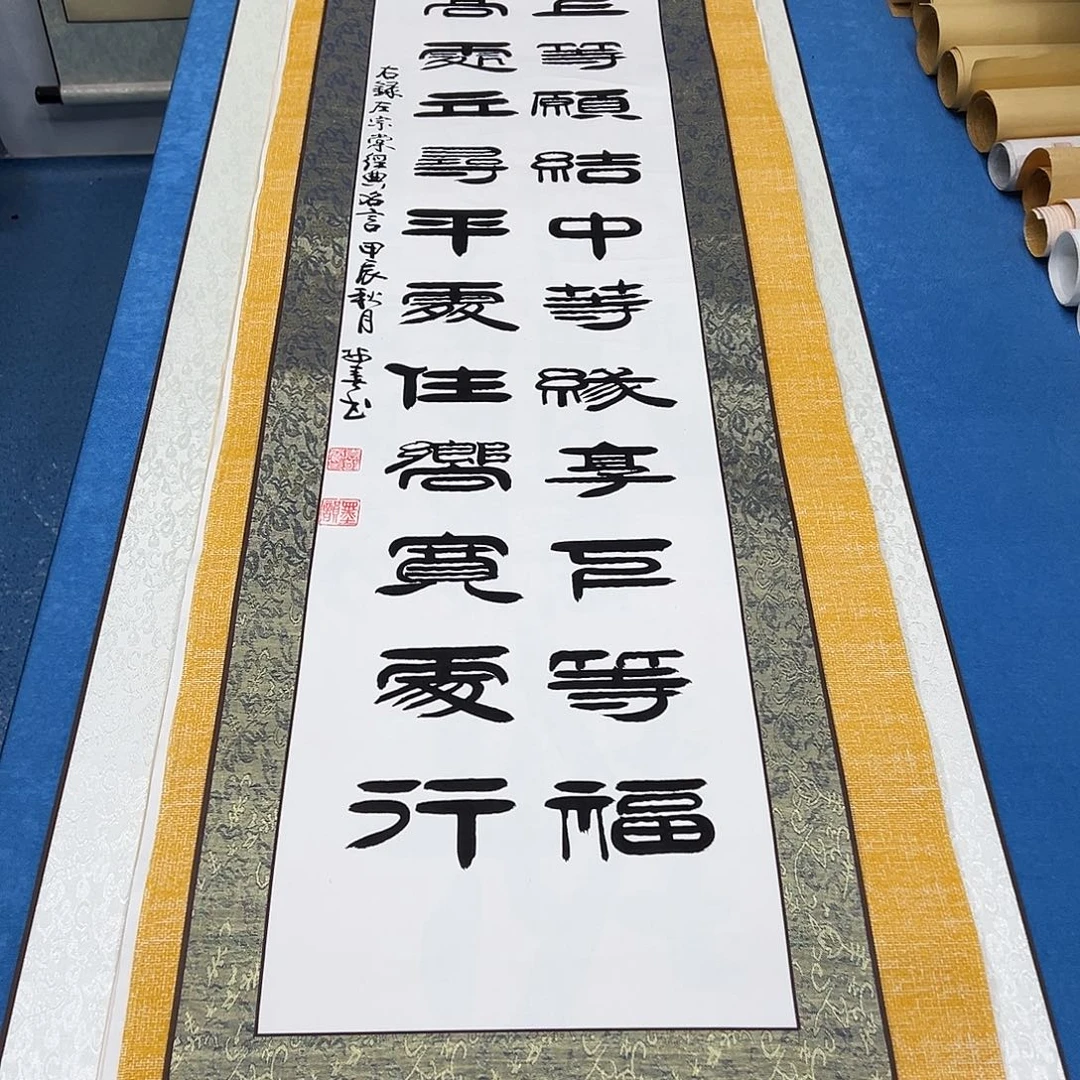 上等願結中等緣享下等福
高處立尋平處住嚮寬處行
右錄左宗棠經典名言 甲辰秋月